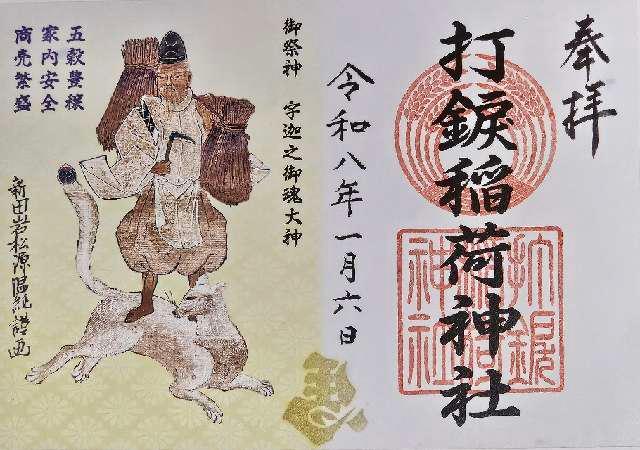 奉拝
打錠稲荷神社
令和八年一月六日
御祭神 宇迦之御魂大神
五穀豊穣
家内安全
商売繁盛
新田岩松源温純謹画